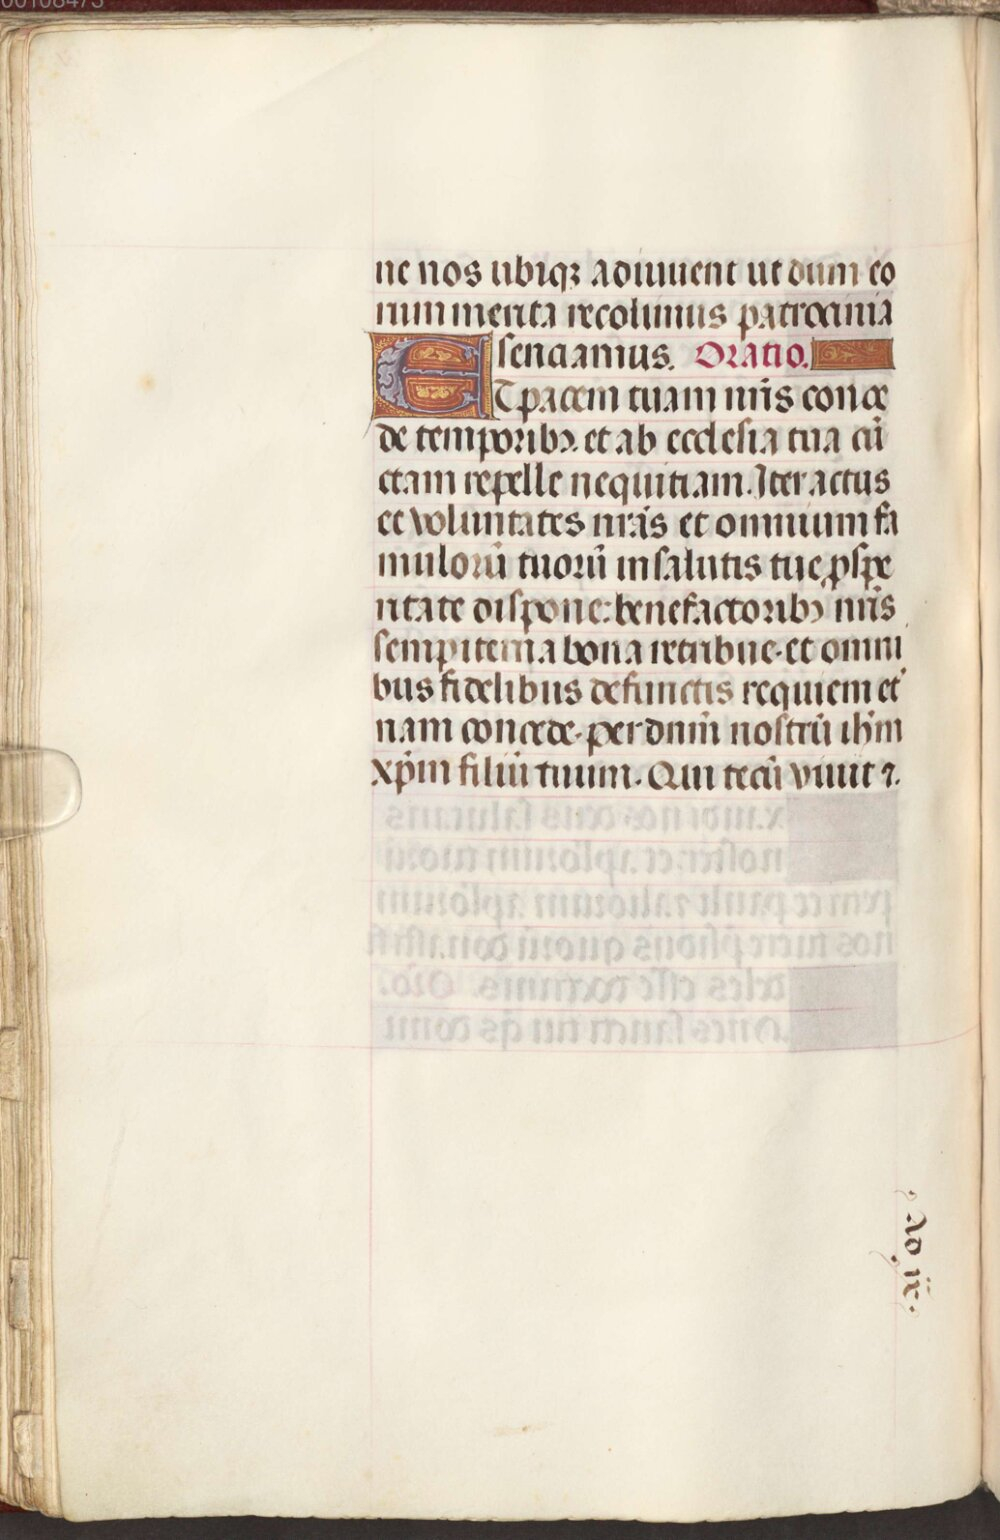 ne nos ubiqꝫ adiuuent ut dum eo
rum merita recolimus patrocinia
senciamus. Oratio.
ET pacem tuam nr̄is conce
de temporibꝫ. et ab ecclesia tua cū
ctam repelle nequitiam. Iter actus
et voluntates nr̄as et omnium fa
mulorū tuorū in salutis tue ꝓspe
ritate dispone: benefactoribꝫ nr̄is
sempiterna bona retribue. et omni
bus fidelibus defunctis requiem et̾
nam concede. per dnm̄ nostrū ihm̄
xp̄m filiū tuum. Qui tecū viuit ⁊.